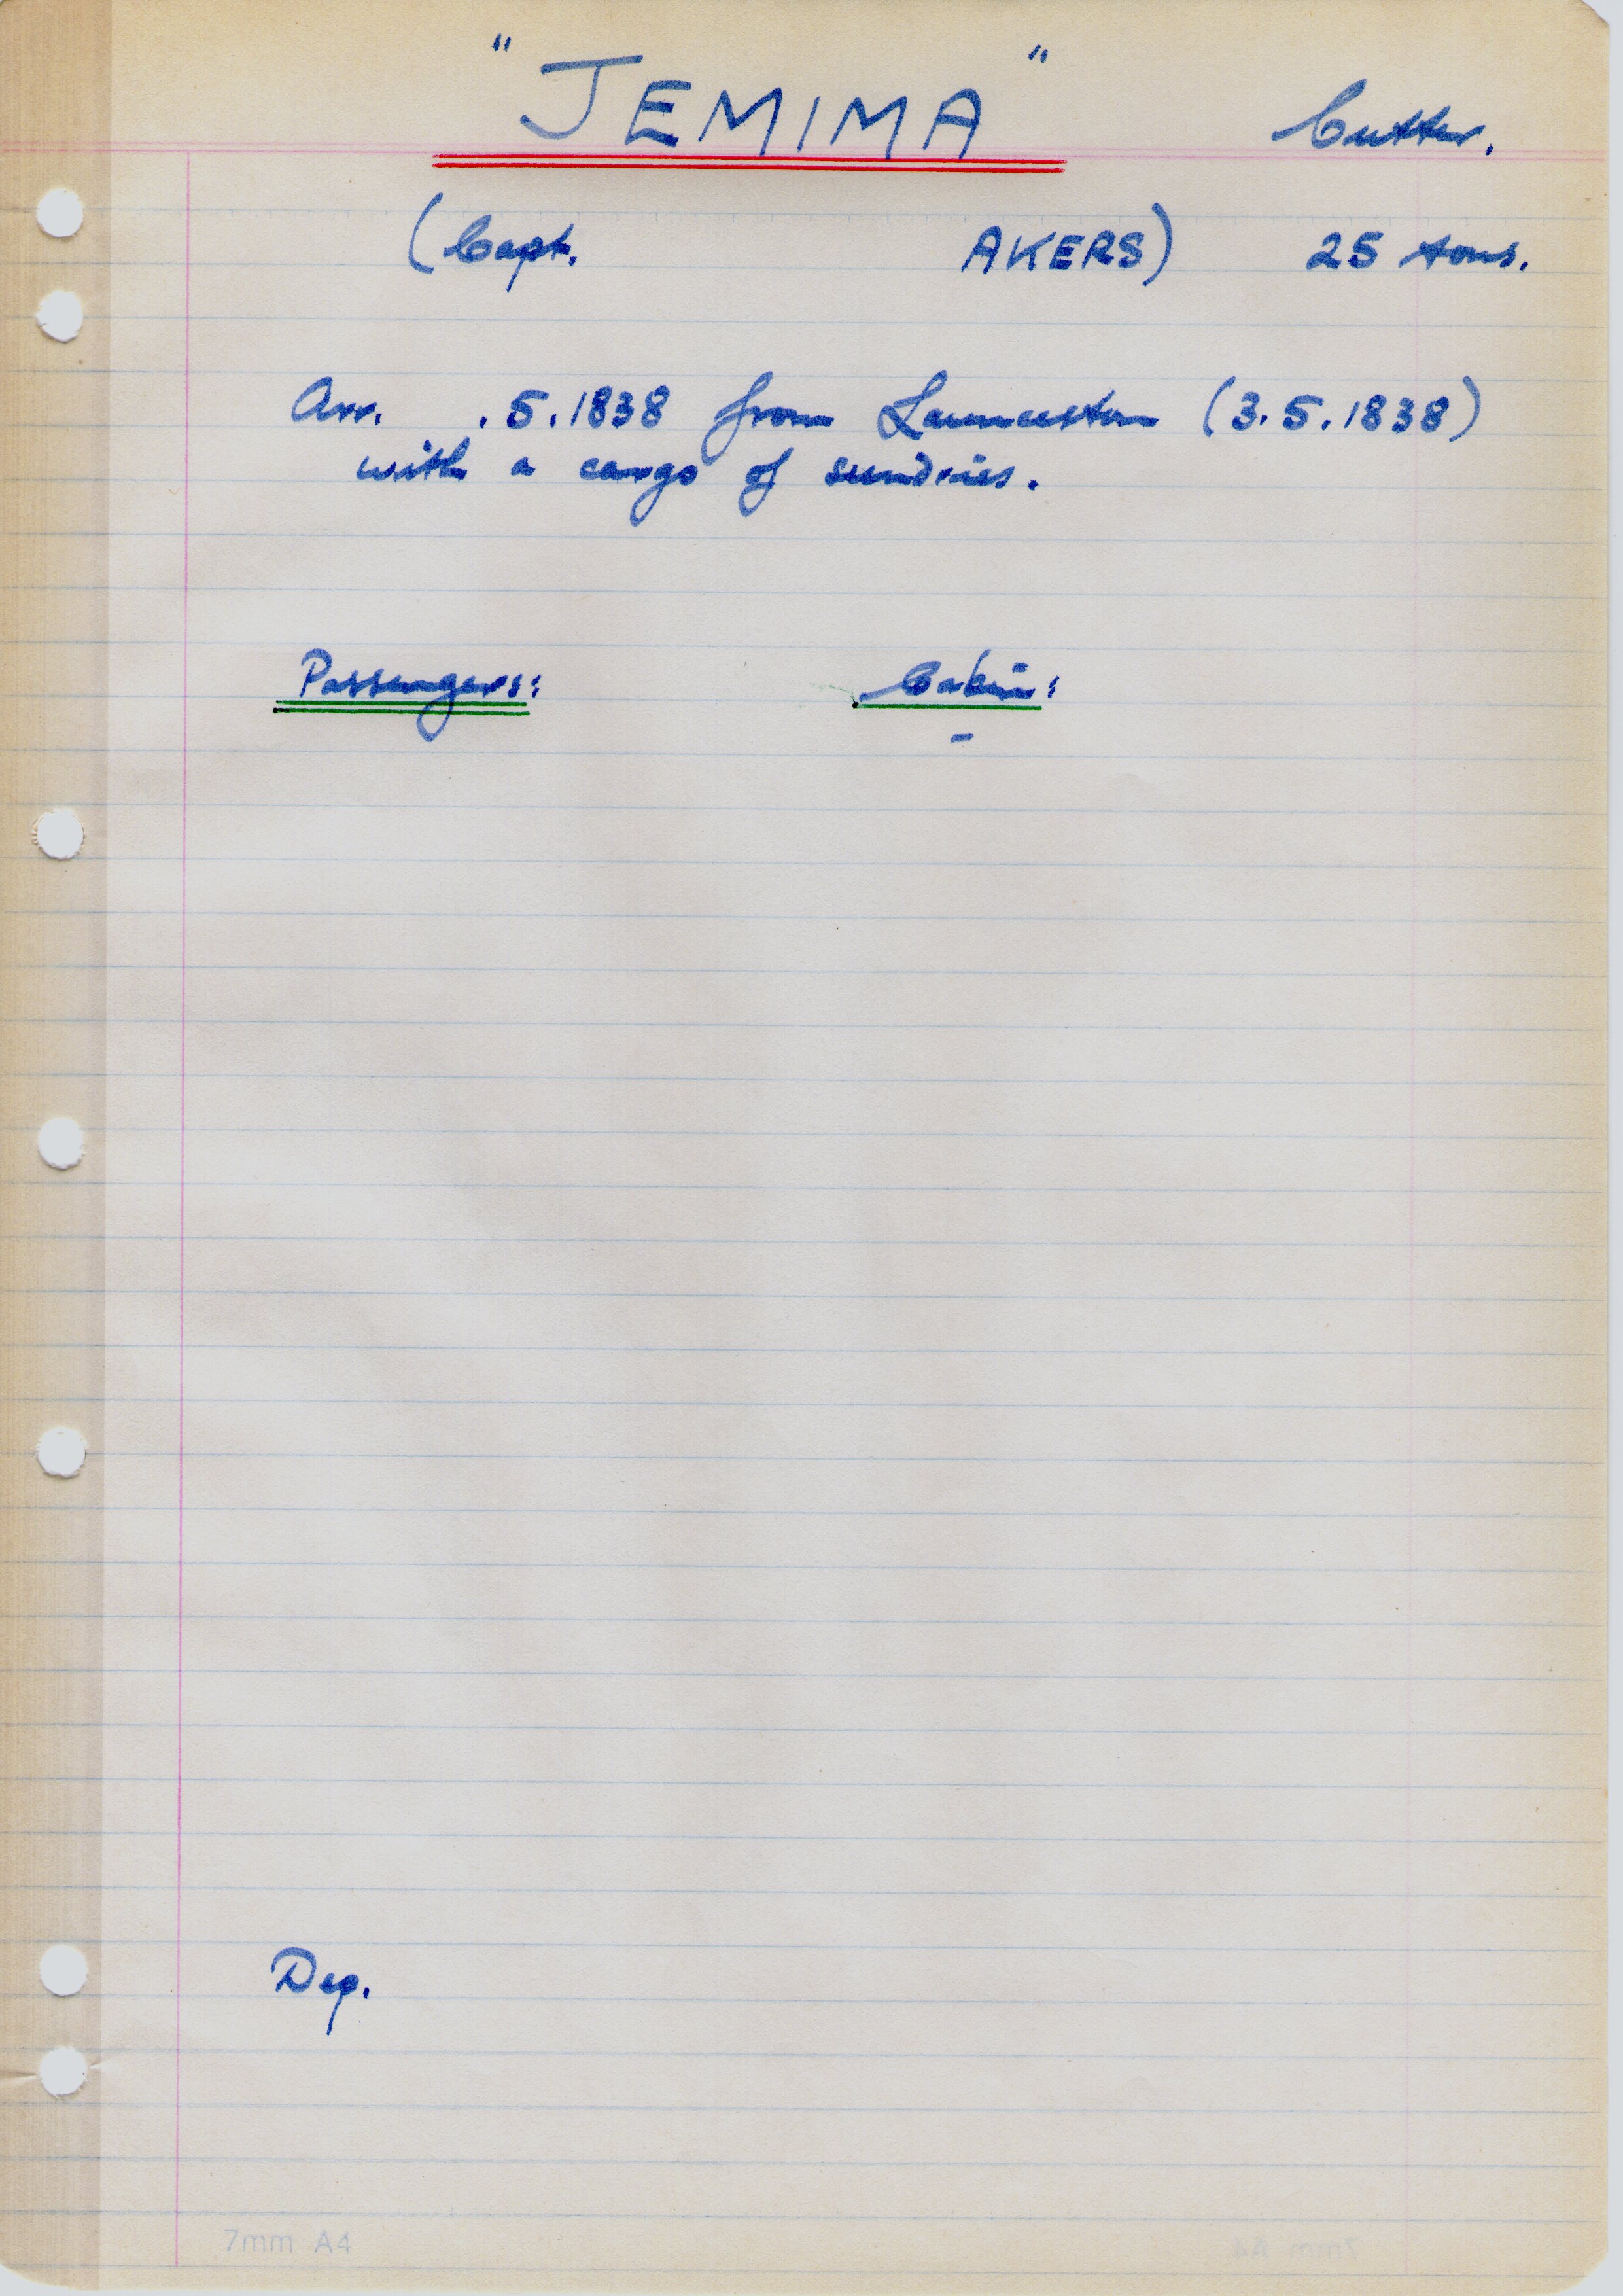 "JEMIMA" Cutter.
(Capt. AKERS) 25 tons.
Arr. .5.1838 from Launceston (3.5.1838)
with a cargo of sundries.
Passengers: Cabin:
-
Dep.
7mm A4